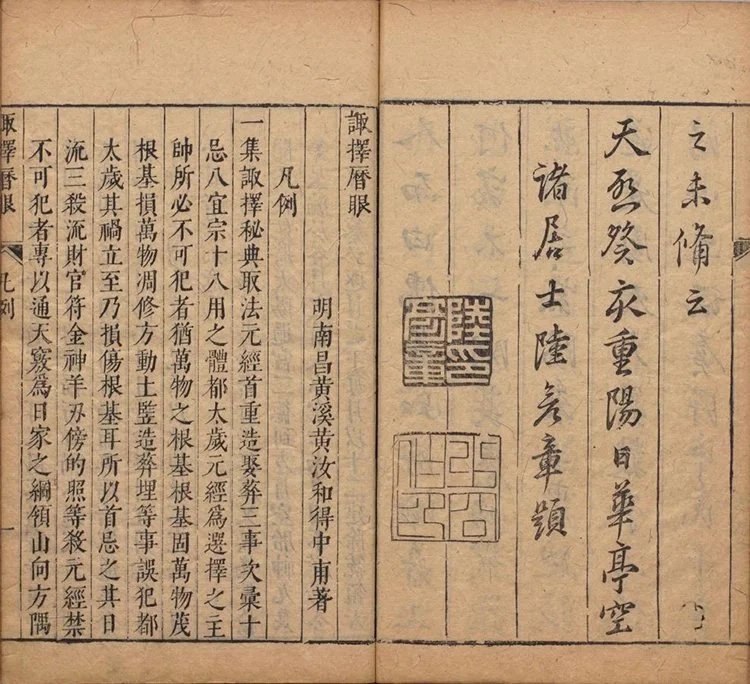 之未脩云
天啓癸亥重陽日華亭空
諸居士陸彥章題
陸印彥章
諏擇曆眼
明南昌黃溪黃汝和得中甫著
凡例
一集諏擇秘典取法元經首重造娶葬三事次彙十
忌八宜宗十八用之體都太歲元經爲選擇之主
帥所必不可犯者猶萬物之根基根基固萬物茂
根基損萬物凋修方動土竪造葬埋等事誤犯都
太歲其禍立至乃損傷根基耳所以首忌之其日
流三殺流財官符金神羊刃傍的照等殺元經禁
不可犯者專以通天竅爲日家之綱領山向方隅
諏擇曆眼 凡例 一